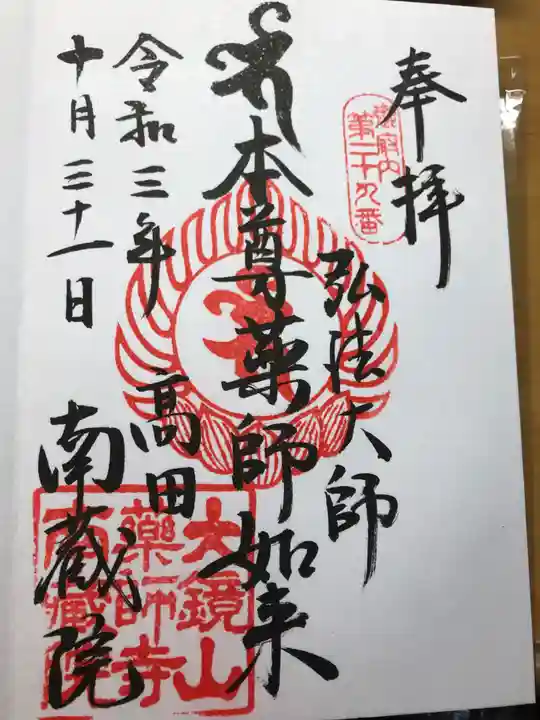 奉拝
御府内
第二十九番
弘法大師
本尊薬師如来
令和三年
十月三十一日
高田
南蔵院
大鏡山
薬師寺
南蔵院